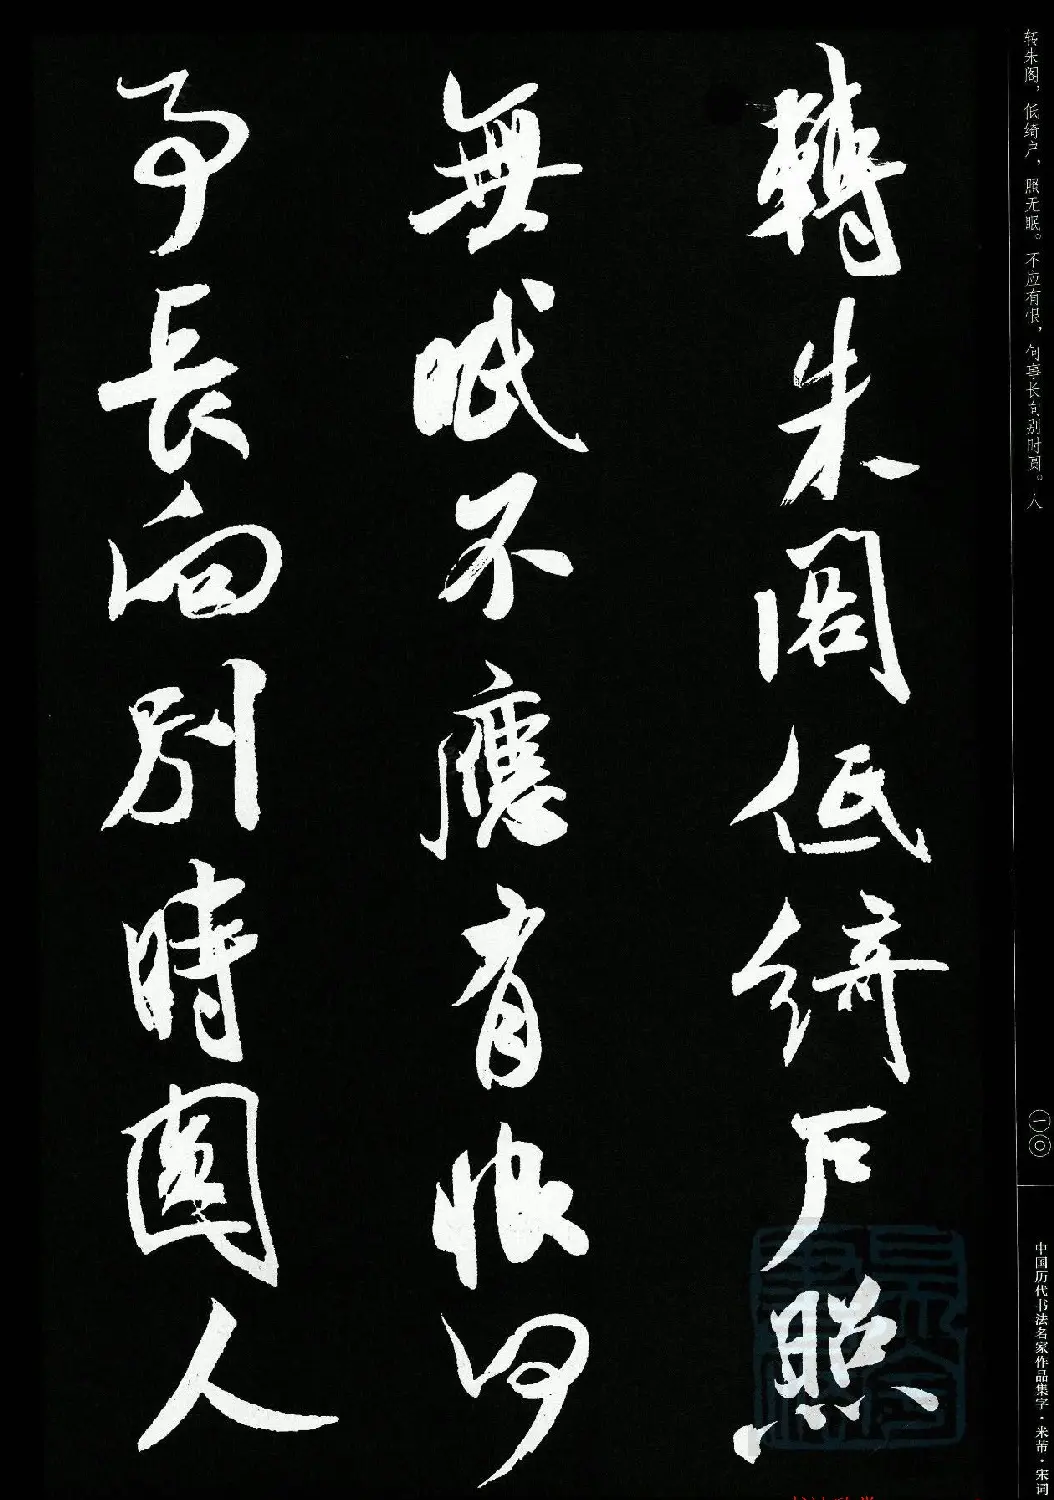 转朱阁，低绮户，照无眠。不应有恨，何事长向别时圆。人
轉朱阁低綺户照
無眠不應有恨何
事長向別時圓人
一〇
中国历代书法名家作品集字·米芾·宋词